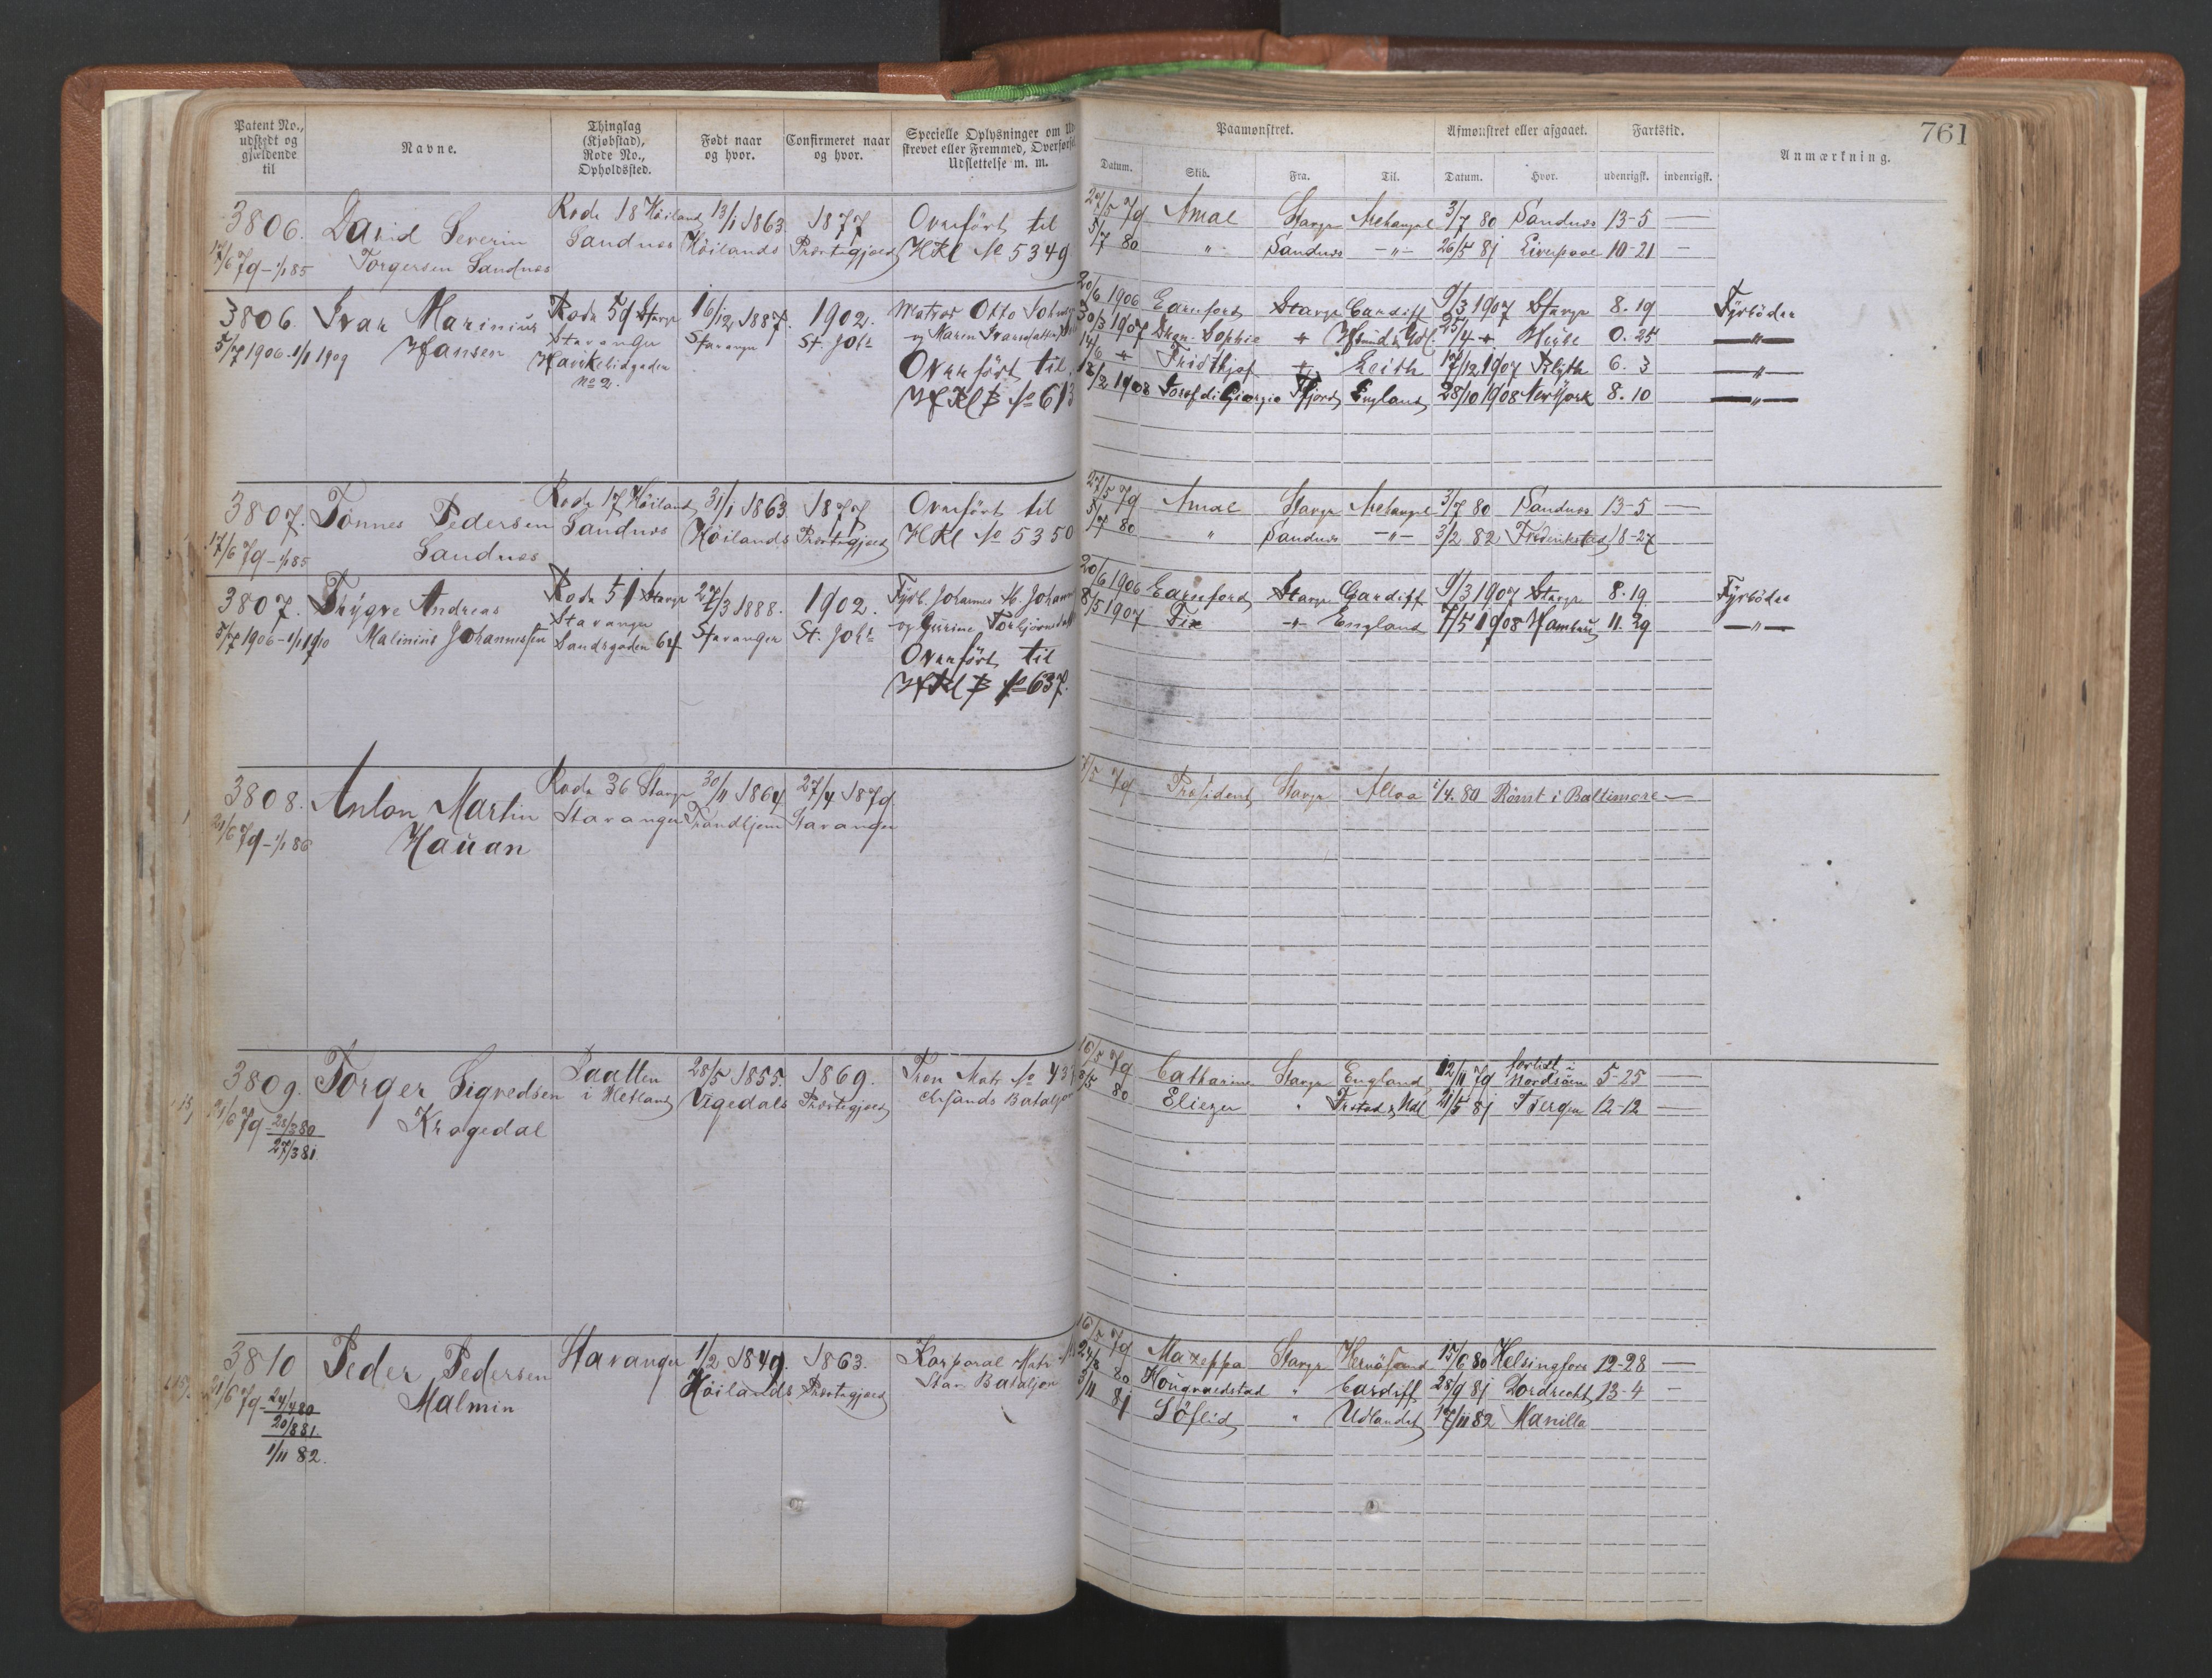 Patent No., udstedt og gjældende til
Navne.
Thinglag (Kjøbstad), Rode No., Opholdssted.
Født naar og hvor.
Confirmeret naar og hvor.
Specielle Oplysninger om
strevet eller Fremmed, Overførsel
Udslettelse m. m.
Paamønstret.
Afmønstret eller afgaaet.
Fartstid.
Anmærkning.
761
Datum. Skib. Fra. Til. Datum. Hvor. udenrigsk. indenrigsk.
3806. David Severin Rode 18 Höiland 13/1 1863. 1877 Overført til
17/6 79 - 1/1 85 Torgersen Sandnes Sandnes Höilands Præstegjæld HKl № 5349
27/5 79 Amal Stavgr Archangel 3/7 80 Sandnes 13-5 —
5/7 80 " Sandnes -"- 26/5 81 Liverpool 10-21 —
3806. Ivar Marinius Rode 59 Stavgr 16/12 1887. 1902. Matros Otto
5/7 1906 - 1/1 1909 Hansen Stavanger Stavanger St. Joh.
og Maren
Haukelidgaden
№ 2.
Overført til
HKl B № 613
20/6 1906 Earnford Stavgr Cardiff 9/3 1907 Stavgr 8. 19 Fyrböder
30/3 1907 Dron. Sophie + 25/4 + 0. 25 —"—
14/6 + Fridthjof + Leith 17/12 1907 Blyth 6. 3 —"—
18/2 1908 Josef di Giorgio Fjord England 28/10 1908 New York 8. 10 —"—
3807. Tönnes Pedersen Rode 17 Höiland 31/1 1863 1877 Overført til
17/6 79 - 1/1 85 Sandnes Sandnes Höilands Præstegjæld HKl № 5350
27/5 79 Amal Stavgr Archangel 3/7 80 Sandnes 13-5 —
5/7 80 " Sandnes -"- 3/2 82 Frederikstad 18-27
3807. Thygve Andreas Rode 51 Stavgr 27/3 1888. 1902. Fyrb. Johannes
5/7 1906 - 1/1 1910 Malinius Johannessen Stavanger Stavanger St. Joh.
Sandsgaden 64
Overført til
HKl B № 637.
20/6 1906 Earnford Stavgr Cardiff 9/3 1907 Stavgr 8. 19 Fyrböder
8/5 1907 Fix -"- England 7/5 1908 Hamburg 11. 29 —"—
3808. Anton Martin Rode 36 Stavgr 30/11 1864 27/4 1879
21/6 79 - 1/1 86 Hauan Stavanger Trondhjem Stavanger
79 Præsident Stavgr Alloa 1/4. 80 Römt i Baltimore —
3809. Torger Sigvedsen Paatten 28/5 1855. 1869.
21/6 79 - 28/3 80 Kragedal i Hetland Vigedals Præstegjæld
27/3 81.
16/5 79 Catharine Stavgr England 12/11 79 forlist i Nordsöen 5-25 —
80 Eliezer " 21/5 81 Bergen 12-12 —
3810 Peder Pedersen Stavanger 1/2 1849. 1863. Korporal Matr
21/6 79 - 24/4 80 Malmin Höilands Præstegjæld Stav. Bataljon
20/8 81.
1/11 82.
16/5 79 Mazeppa Stavgr Hernösand 15/6 80 Helsingfors 12-28 —
80 " Cardiff 28/9 81 Dordrecht 13-4 —
3/11 81 " Udlandet 17/11 82 Manilla